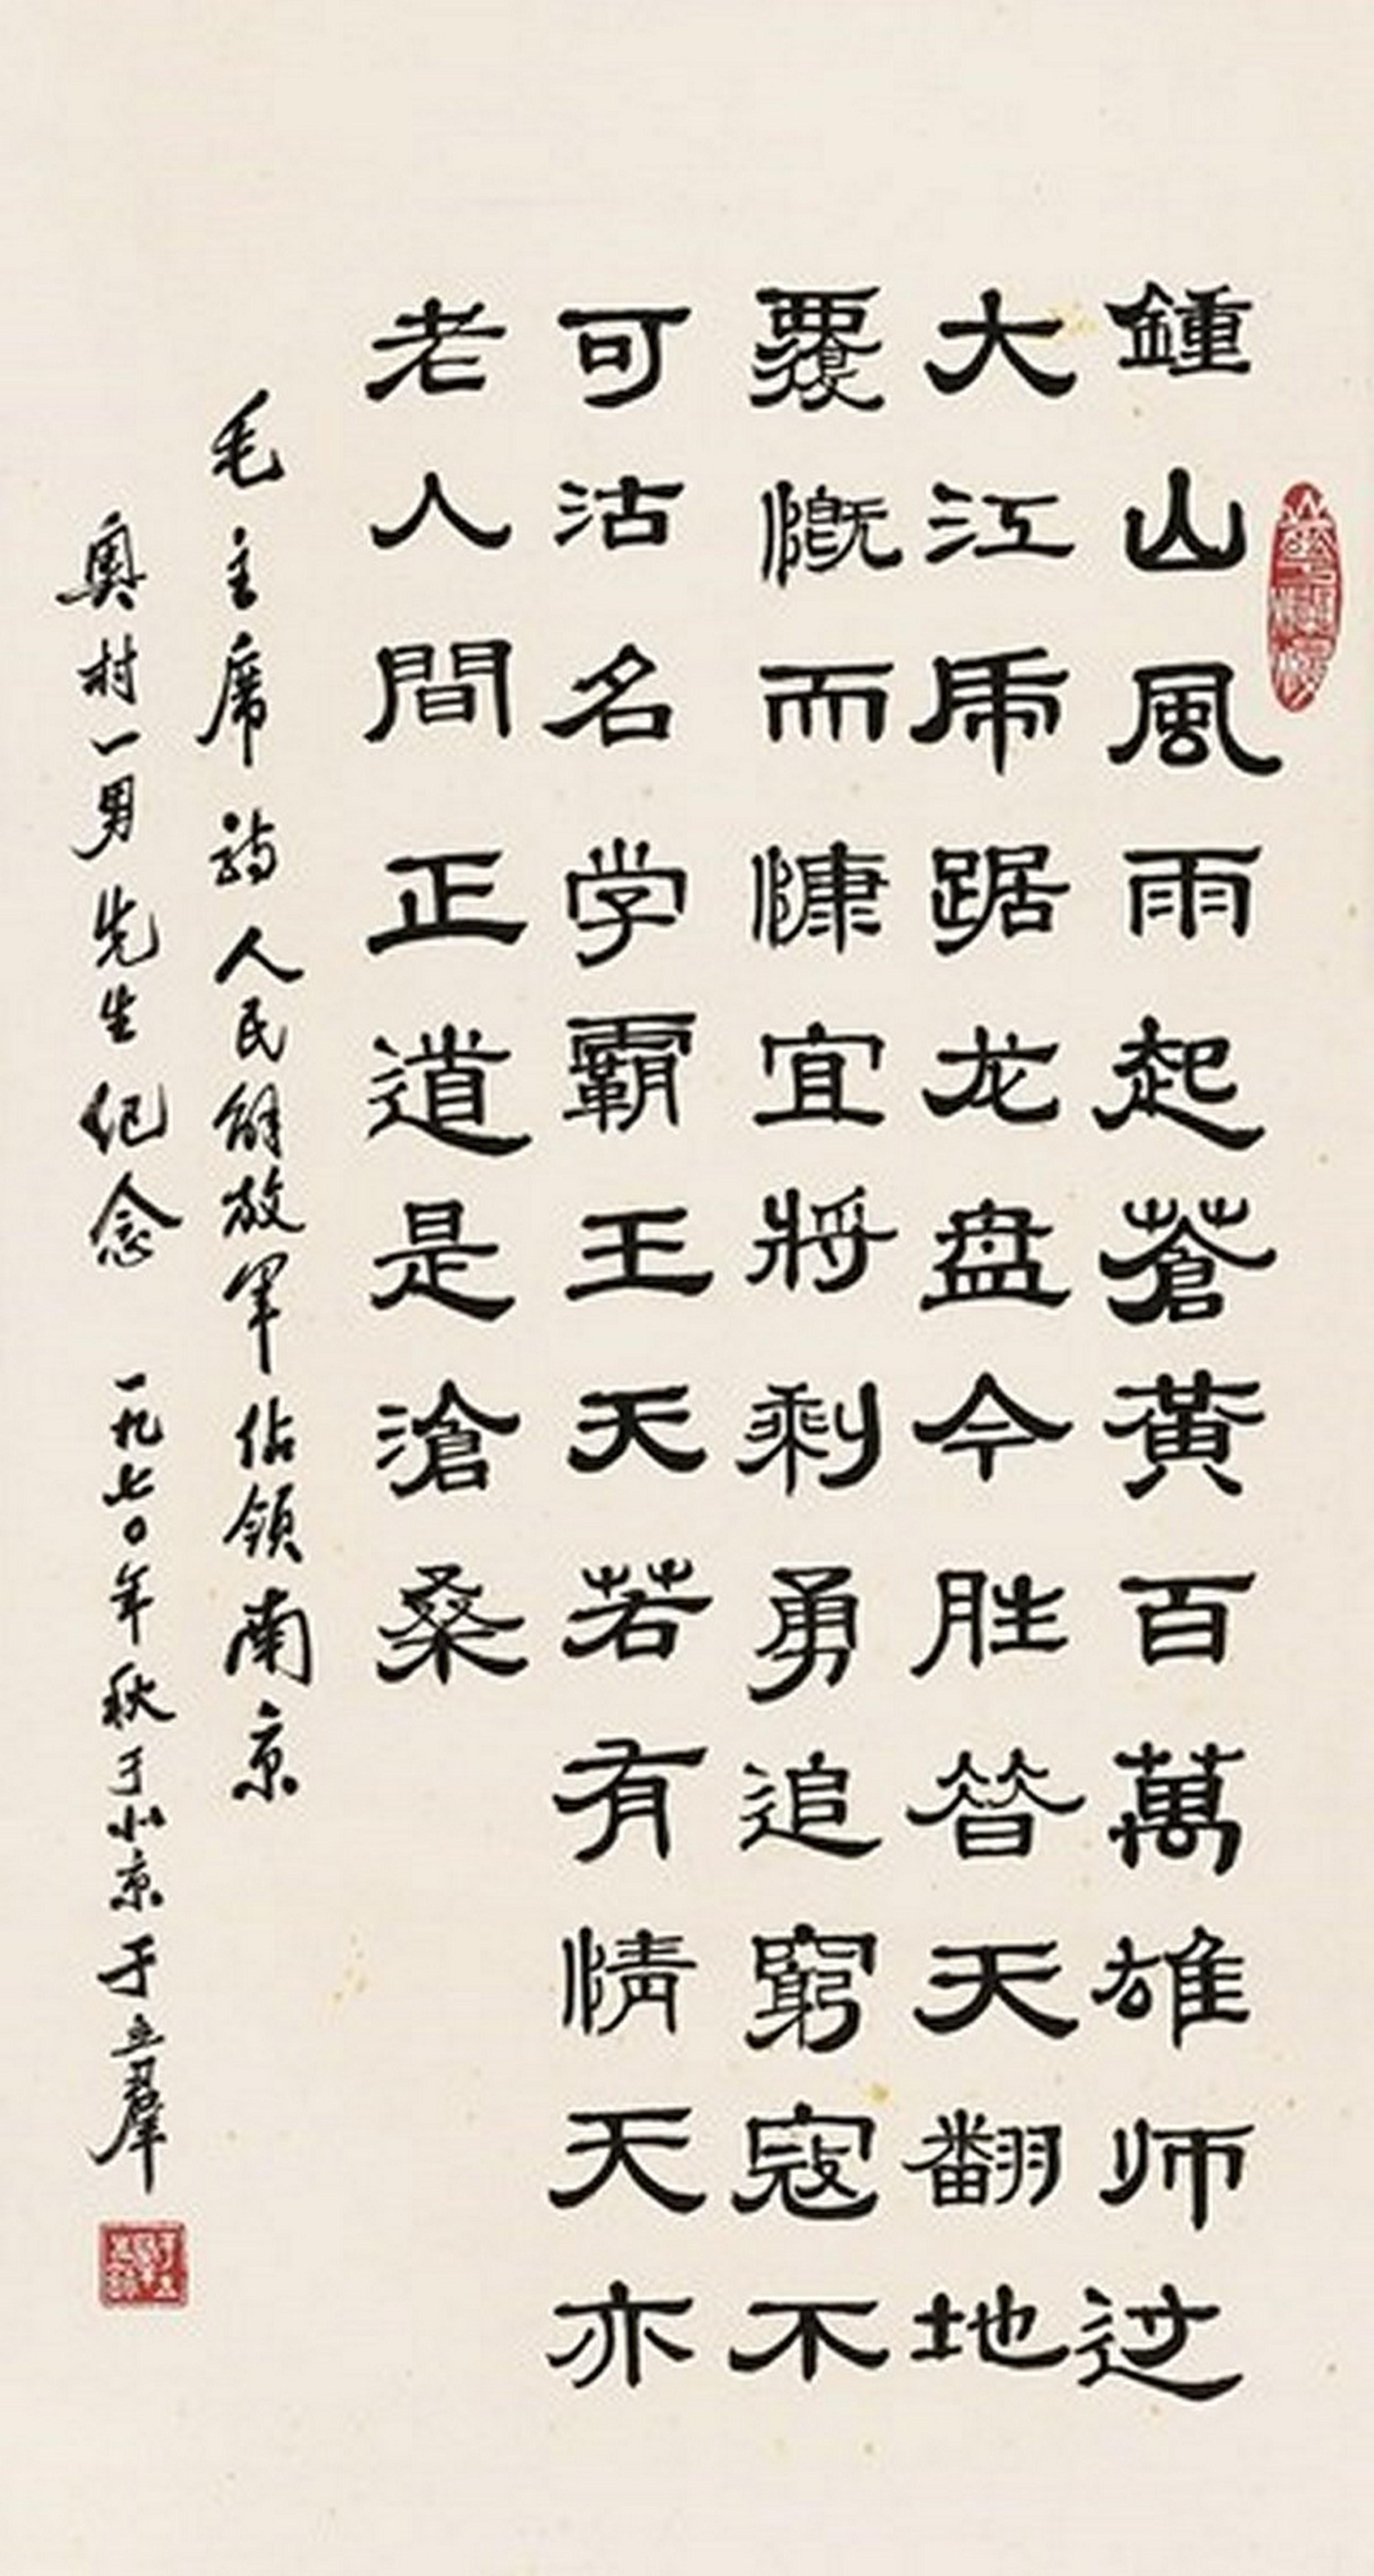 鍾山風雨起蒼黃百萬雄师过
大江虎踞龙盘今胜昔天翻地
覆慨而慷宜将剩勇追窮寇不
可沽名学霸王天若有情天亦
老人間正道是滄桑
毛主席诗人民解放军佔領南京
奥村一男先生纪念 一九七〇年秋于北京于立群